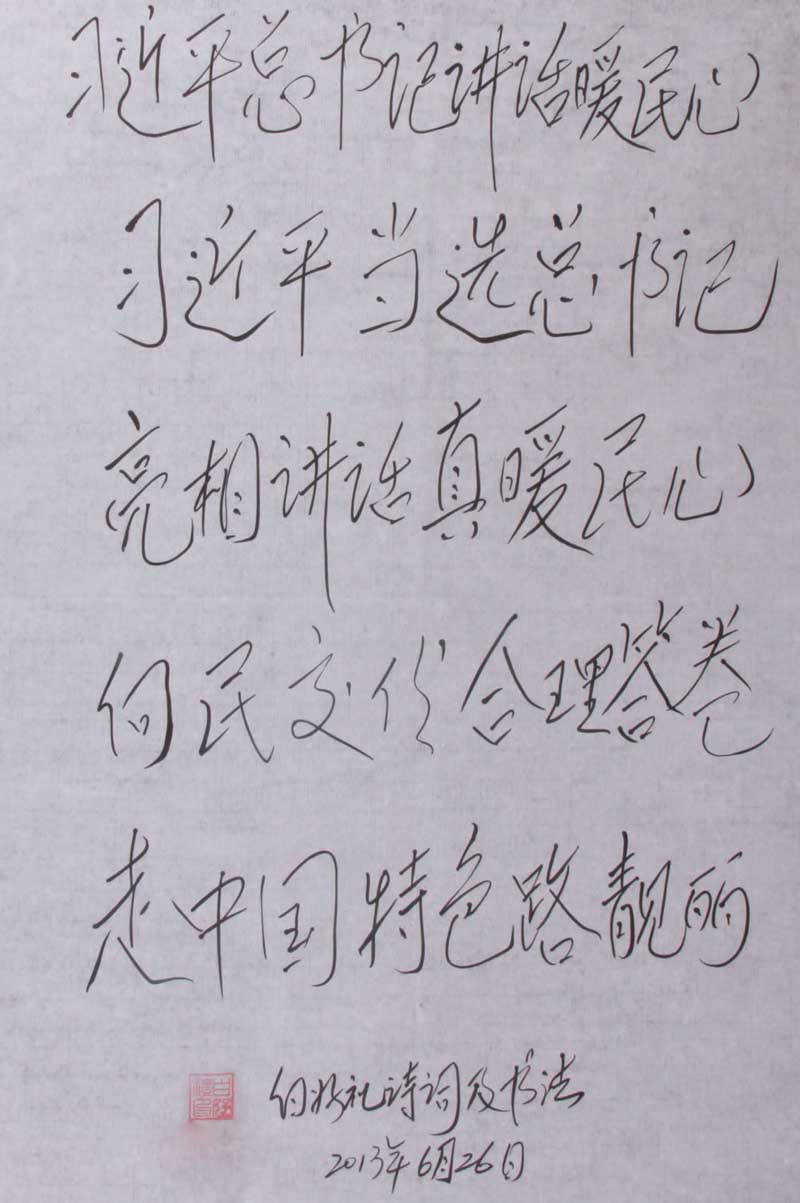 习近平总书记讲话暖民心
习近平当选总书记
亮相讲话真暖民心
向民交份合理答卷
走中国特色路靓丽
社诗词及书法
2013年6月26日